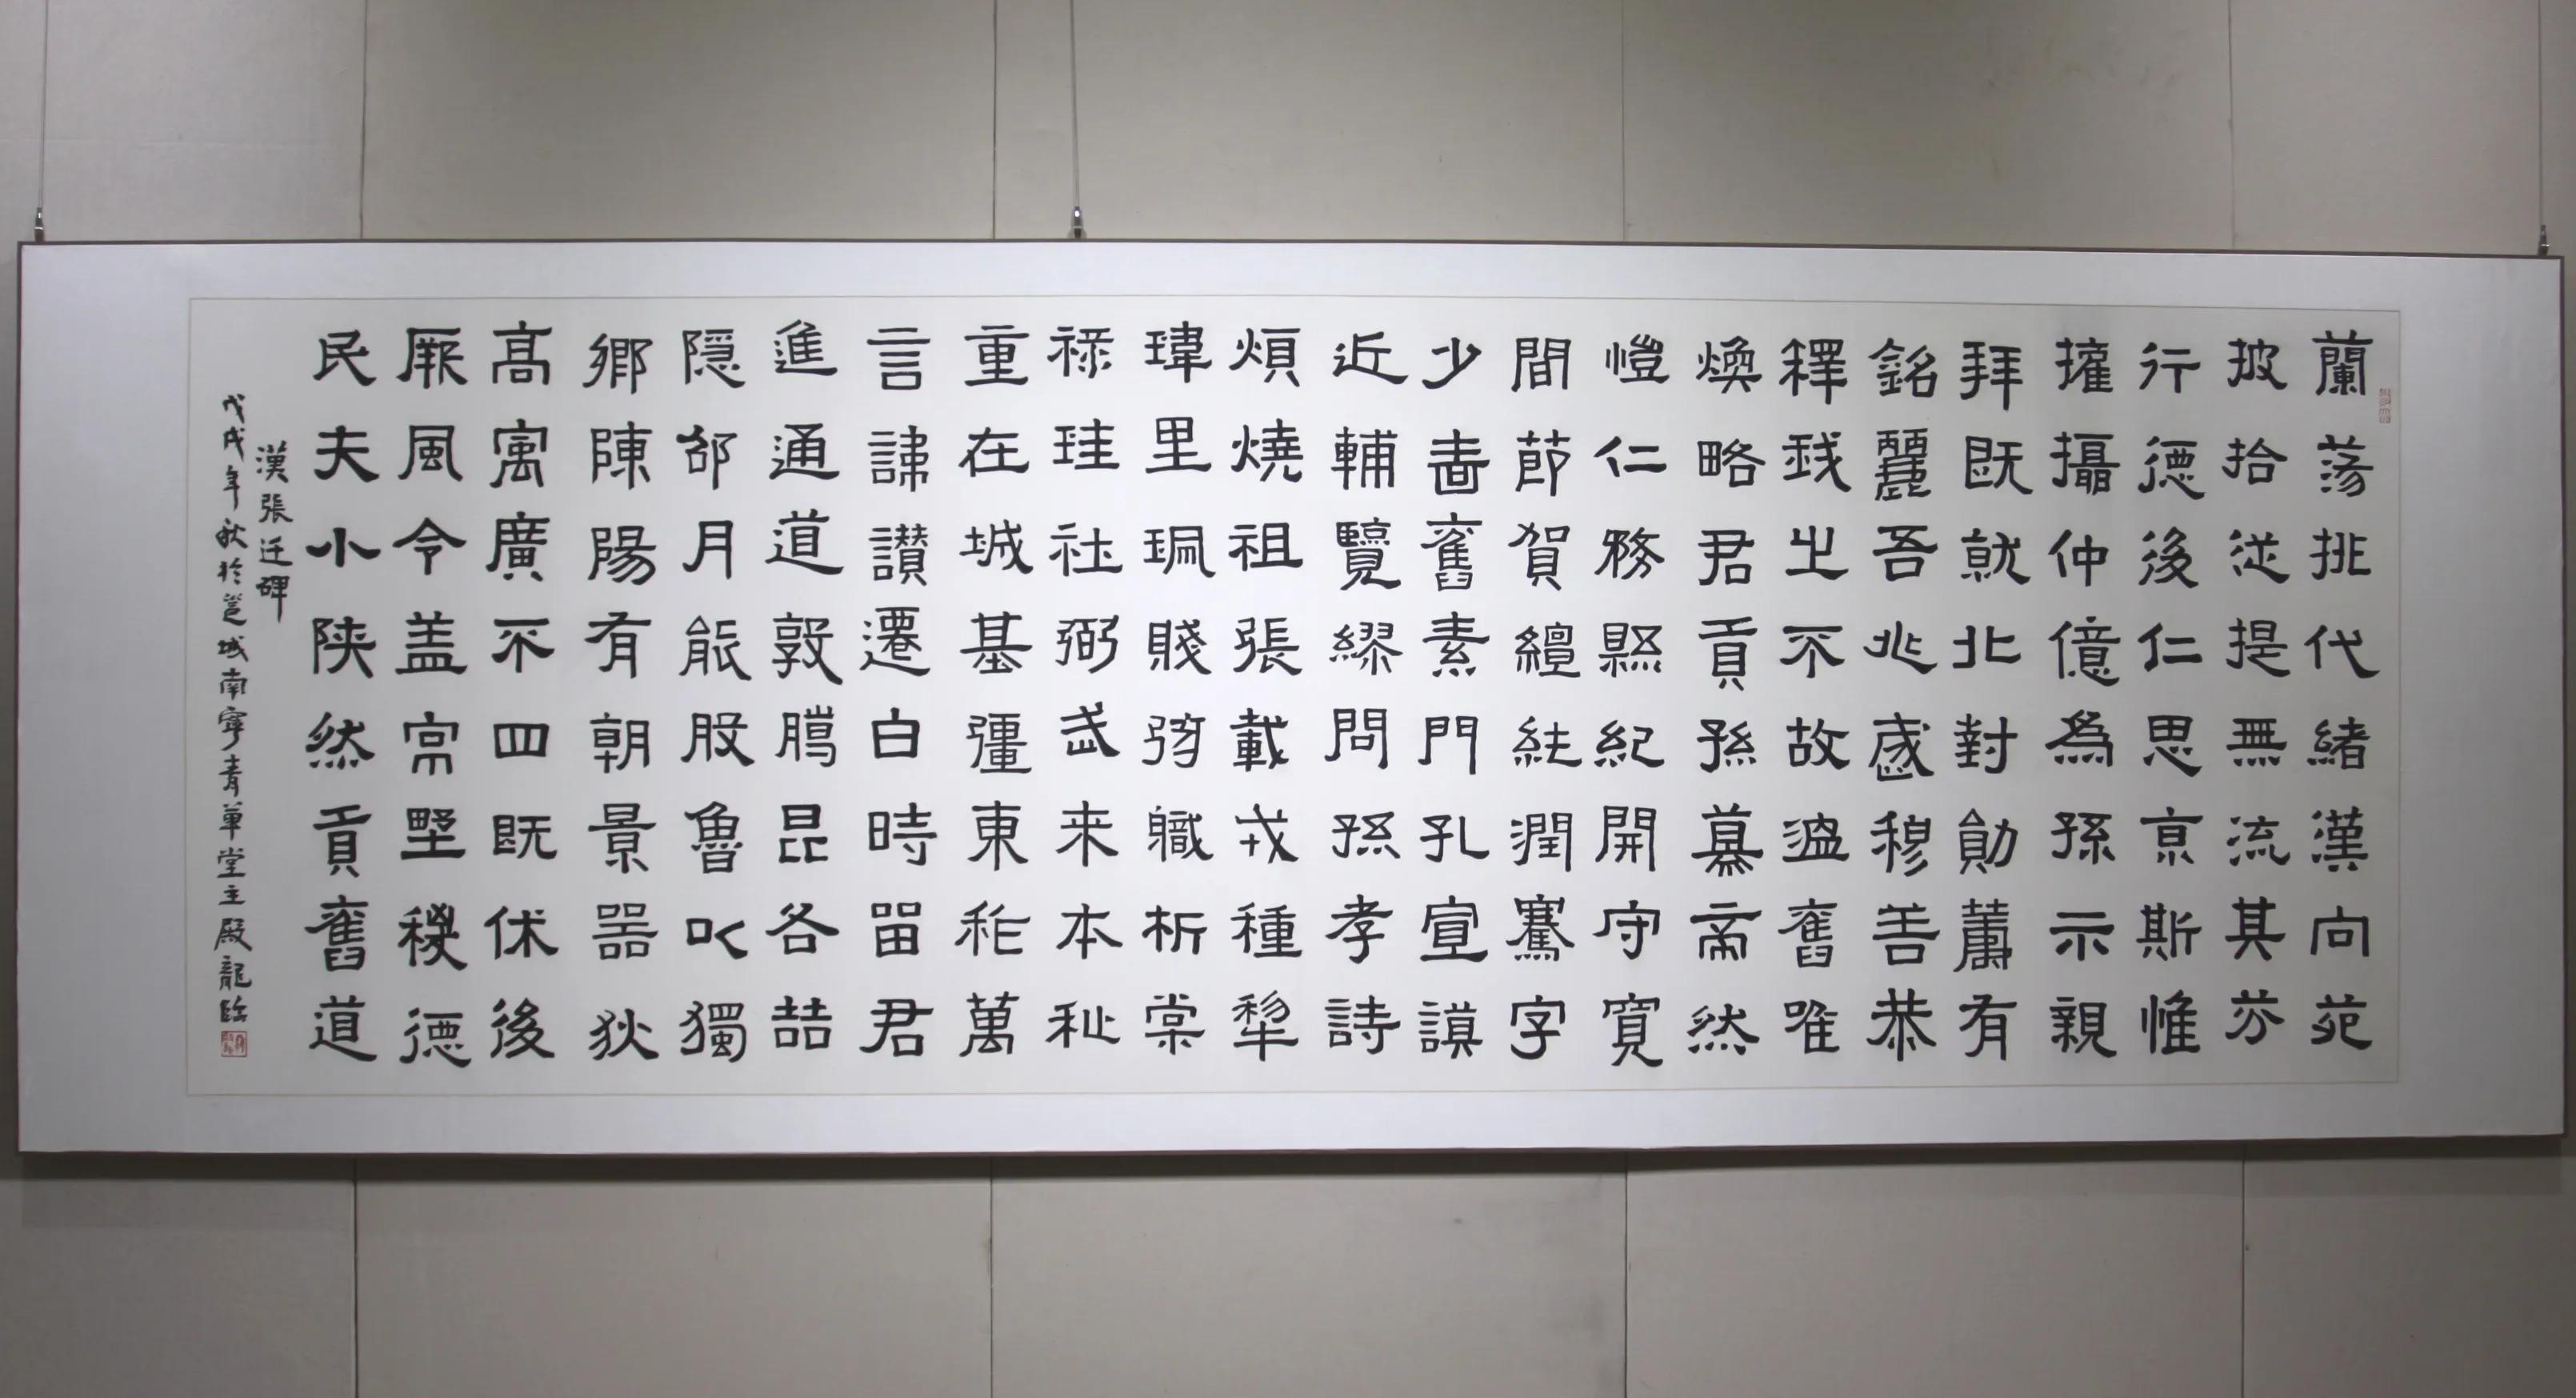 蘭蕩挑代緒漢向苑
披拾従提無流其芬
行德後仁思京斯惟
攉攝仲億為孫示親
拜既就北對勛蕭有
銘麗吾兆感穆善恭
釋我之不故盗舊唯
煥略君貢孫慕帝然
愷仁務縣紀開守寬
間節賀紀潤騫字
少嗇舊素門孔宣謨
近輔覽繆問孫孝詩
煩燒祖張載戎種犂
瑋里珮賤職析棠
祿珪社弼武来本秋
重在城基彊東祚萬
言諫讃遷白時留君
進通道敦鴈昆各喆
隱郃月能股魯以獨
鄉陳陽有朝景嚚狄
高寓廣不四既休後
厥風令盖常野稷德
民夫小陝然貢舊道
漢張迁碑
戊戌年秋於邕城南寧青草堂主殿龍臨